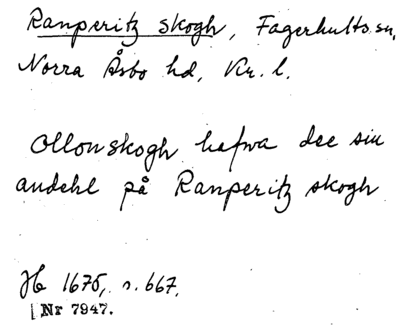 Ranperitz skogh, Fagerhults sn,
Norra Åsbo hd, Kr. l.
Ollonskogh hafwa dee sin
andehl på Ranperitz skogh
Jb 1675, s. 667.
Nr 7947.